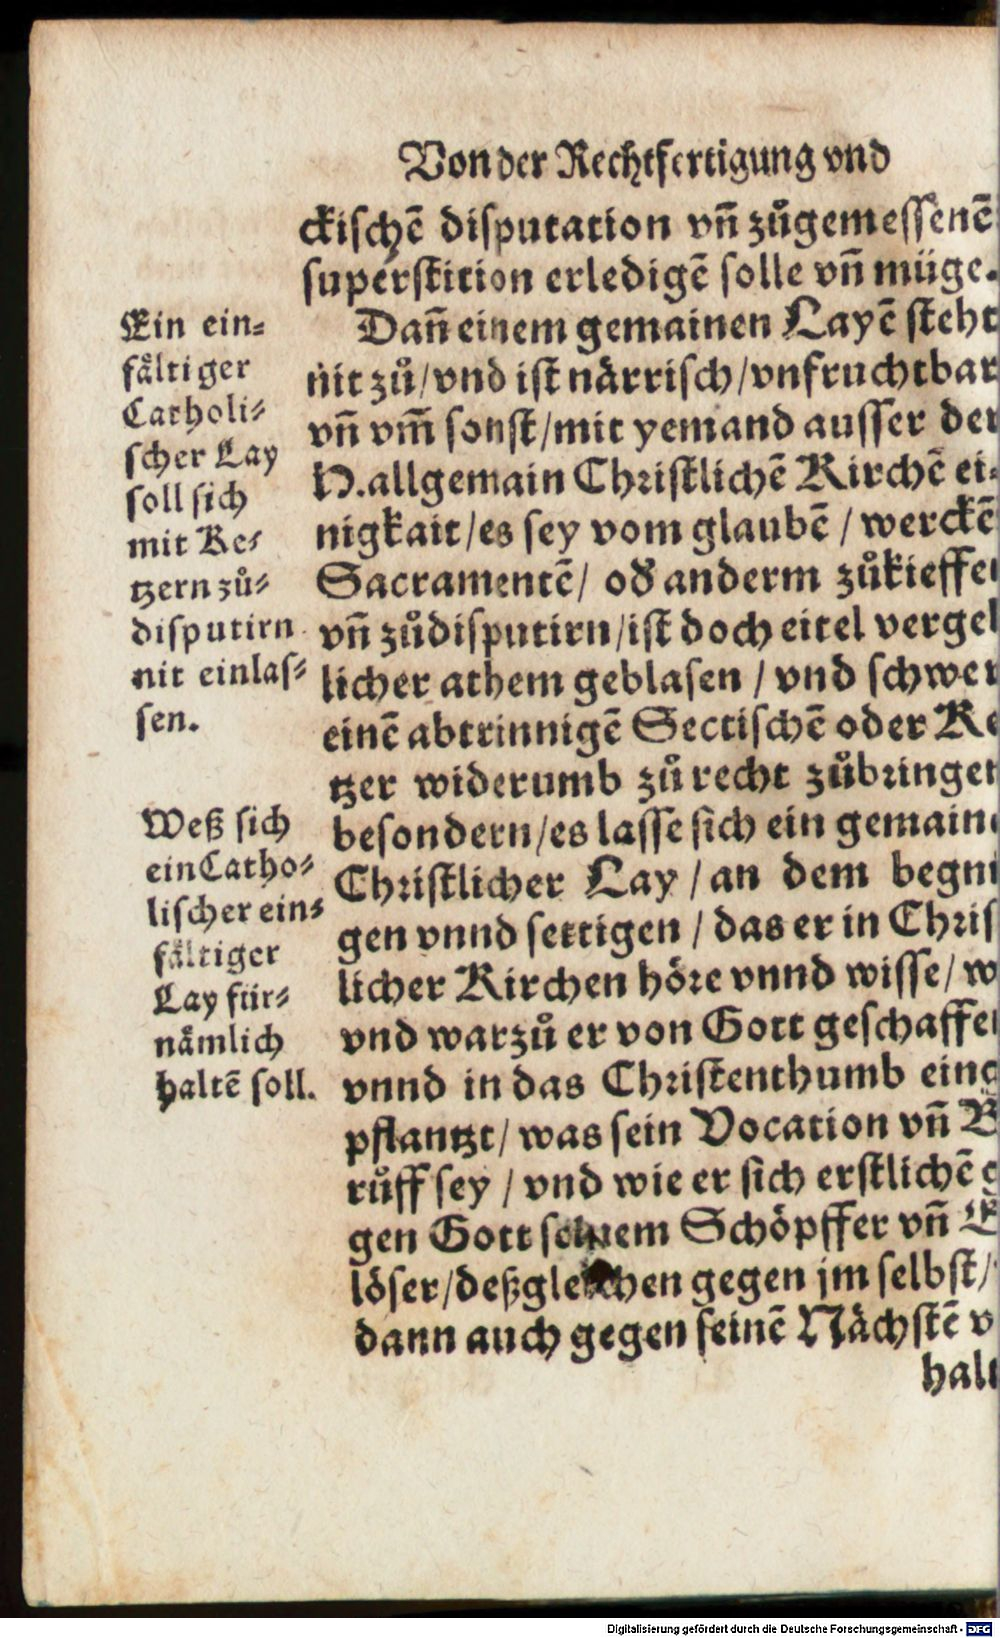 Von der Rechtfertigung vnd
ckischẽ disputation vñ zůgemessenẽ
superstition erledigẽ solle vñ müge.
Dañ einem gemainen Layẽ steht
nit zů/vnd ist närrisch/vnfruchtbar
vñ vm̃ sonst/mit yemand ausser der
H.allgemain Christlichẽ Kirchẽ ei-
nigkait/es sey vom glaubẽ/werckẽ
Sacramentẽ/ od anderm zůkieffe
vñ zůdisputirn/ist doch eitel vergel
licher athem geblasen/vnd schwer
einẽ abtrinnigẽ Sectischẽ oder Ke
tzer widerumb zů recht zůbringen
besondern/es lasse sich ein gemain
Christlicher Lay/an dem begni
gen vnnd settigen/das er in Chris
licher Kirchen höre vnnd wisse/w
vnd warzů er von Gott geschaffe
vnnd in das Christenthumb eing
pflantzt/was sein Vocation vñ B
růff sey/vnd wie er sich erstlichẽ g
gen Gott seinem Schöpffer vñ E
löser/deßgleichen gegen jm selbst/
dann auch gegen seinẽ Nächstẽ v
halt
Ein ein-
fältiger
Catholi-
scher Lay
soll sich
mit Ke-
tzern zů-
disputirn
nit einlas-
sen.
Weß sich
ein Catho-
lischer ein-
fältiger
Lay für-
nämlich
haltẽ soll.
Digitalisierung gefördert durch die Deutsche Forschungsgemeinschaft - DFG